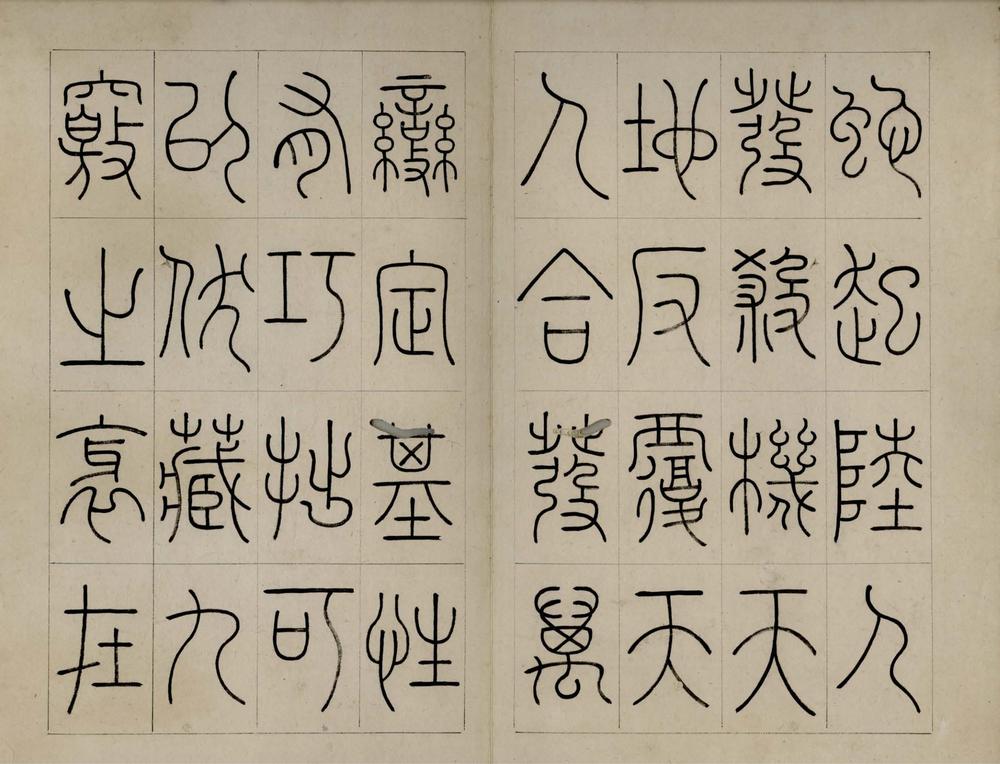 蛇起陸人
發殺機天
地反覆天
人合發萬
變定基性
有巧拙可
以伏藏九
竅之衺在